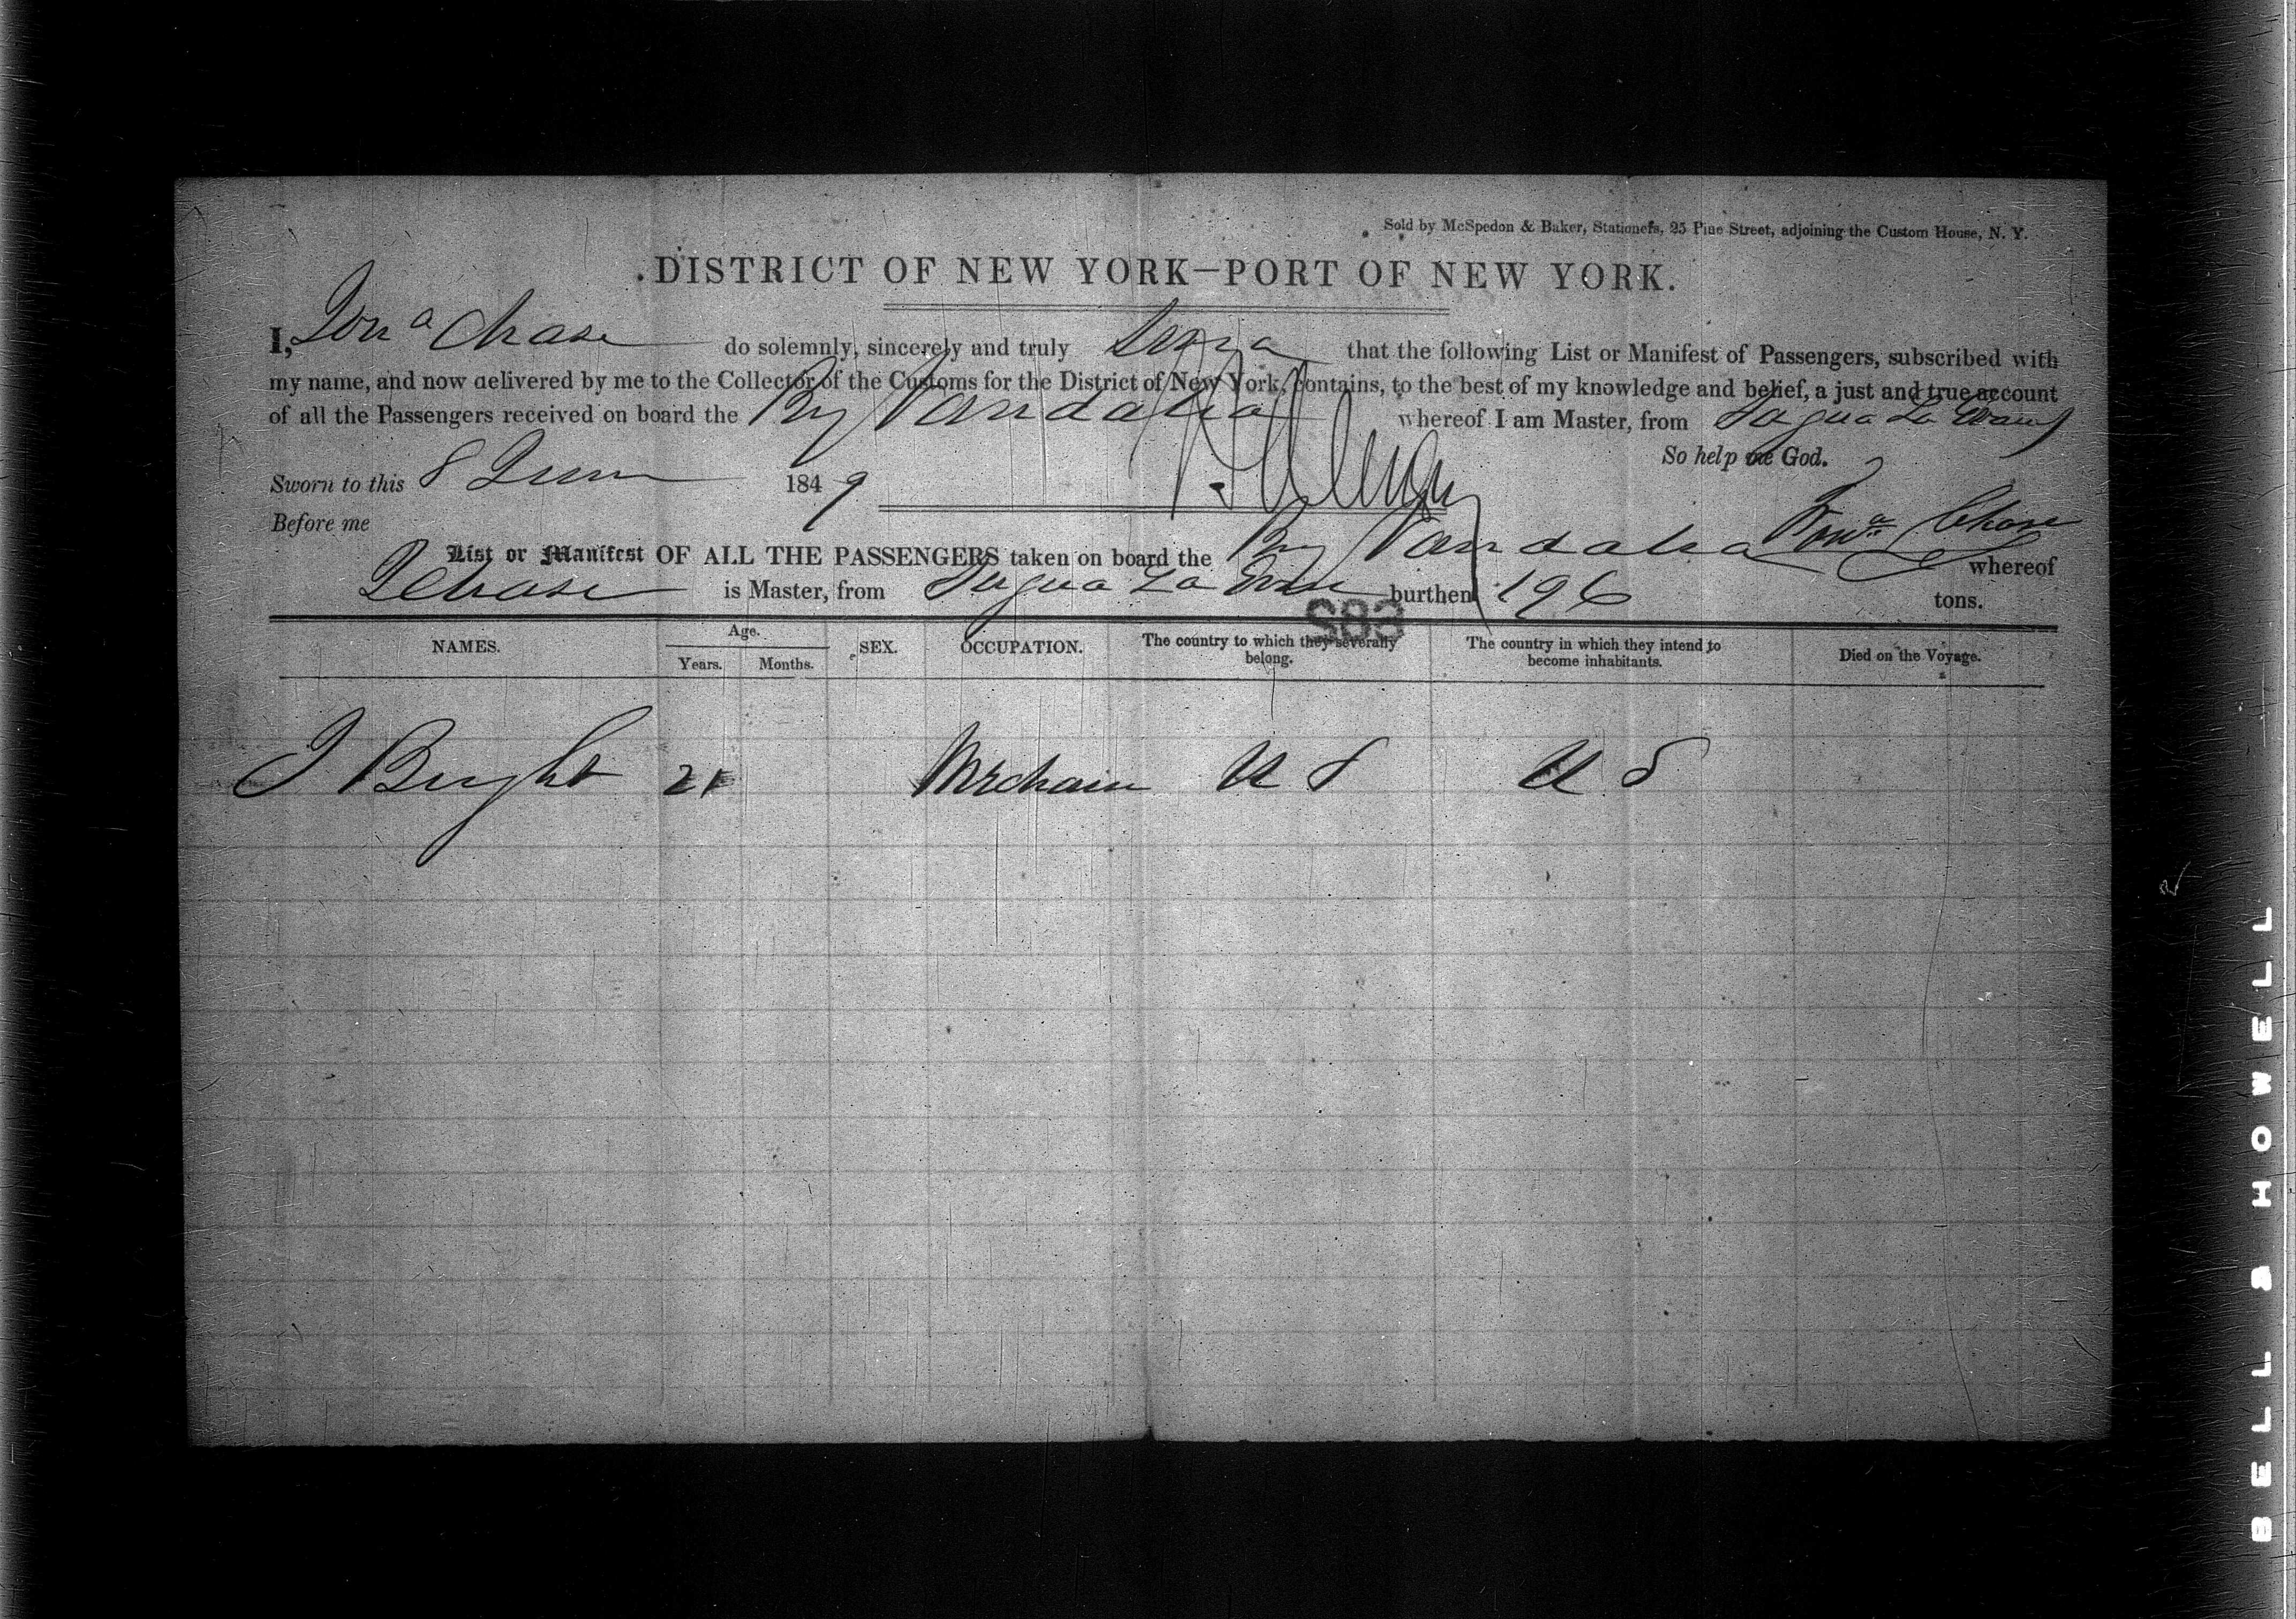 Sold by McSpedon & Baker, Stationers, 25 Pine Street, adjoining the Custom House, N. Y.
DISTRICT OF NEW YORK—PORT OF NEW YORK.
I, Jonª Chase do solemnly, sincerely and truly that the following List or Manifest of Passengers, subscribed with
my name, and now delivered by me to the Collector of the Customs for the District of New York, contains, to the best of my knowledge and belief, a just and true account
of all the Passengers received on board the Brig Vandalia whereof I am Master, from Sagua La Grand
So help me God.
Sworn to this 8 June 1849
Before me
Jonª Chase
List or Manifest OF ALL THE PASSENGERS taken on board the Brig Vandalia whereof
J Chase is Master, from Sagua La burthen 196 tons.
S83
NAMES. Age. Years. Months. SEX. OCCUPATION. The country to which they severally belong. The country in which they intend to become inhabitants. Died on the Voyage.
J Bright 21 Merchant U S U S
BELL & HOWELL